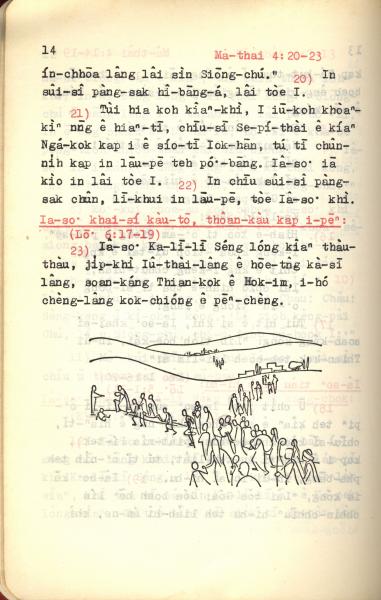 14
Ma-thai 4:20-23
ín-chhōa lâng lâi sìn Siōng-chú." 20) In
sûi-sî pàng-sak hî-bāng-á, lâi tòe I.
21) Tùi hia koh kiâⁿ-khì, I iū-koh khòaⁿ-
kìⁿ nn̄g ê hiaⁿ-tī, chiū-sī Se-pí-thài ê kíaⁿ
Ngá-kok kap i ê sío-tī Iok-hān, tú tī chûn-
nih kap in lāu-pē teh pó·-bāng. Ià-so· iā
kìo in lâi tòe I. 22) In chīu sûi-sî pàng-
sak chûn, lī-khui in lāu-pē, tòe Iâ-so· khì.
Ia-so· khai-sí kàu-tō, thôan-kàu kap i-pēⁿ:
(Lō· 6:17-19)
23) Ià-so· Ka-lī-lī Séng lóng kiâⁿ thâu-
thàu, ji̍p-khì Iû-thài-lâng ê hōe-tn̂g kà-sī
lâng, soan-káng Thian-kok ê Hok-im, i-hó
chèng-lâng kok-chióng ê pēⁿ-chèng.